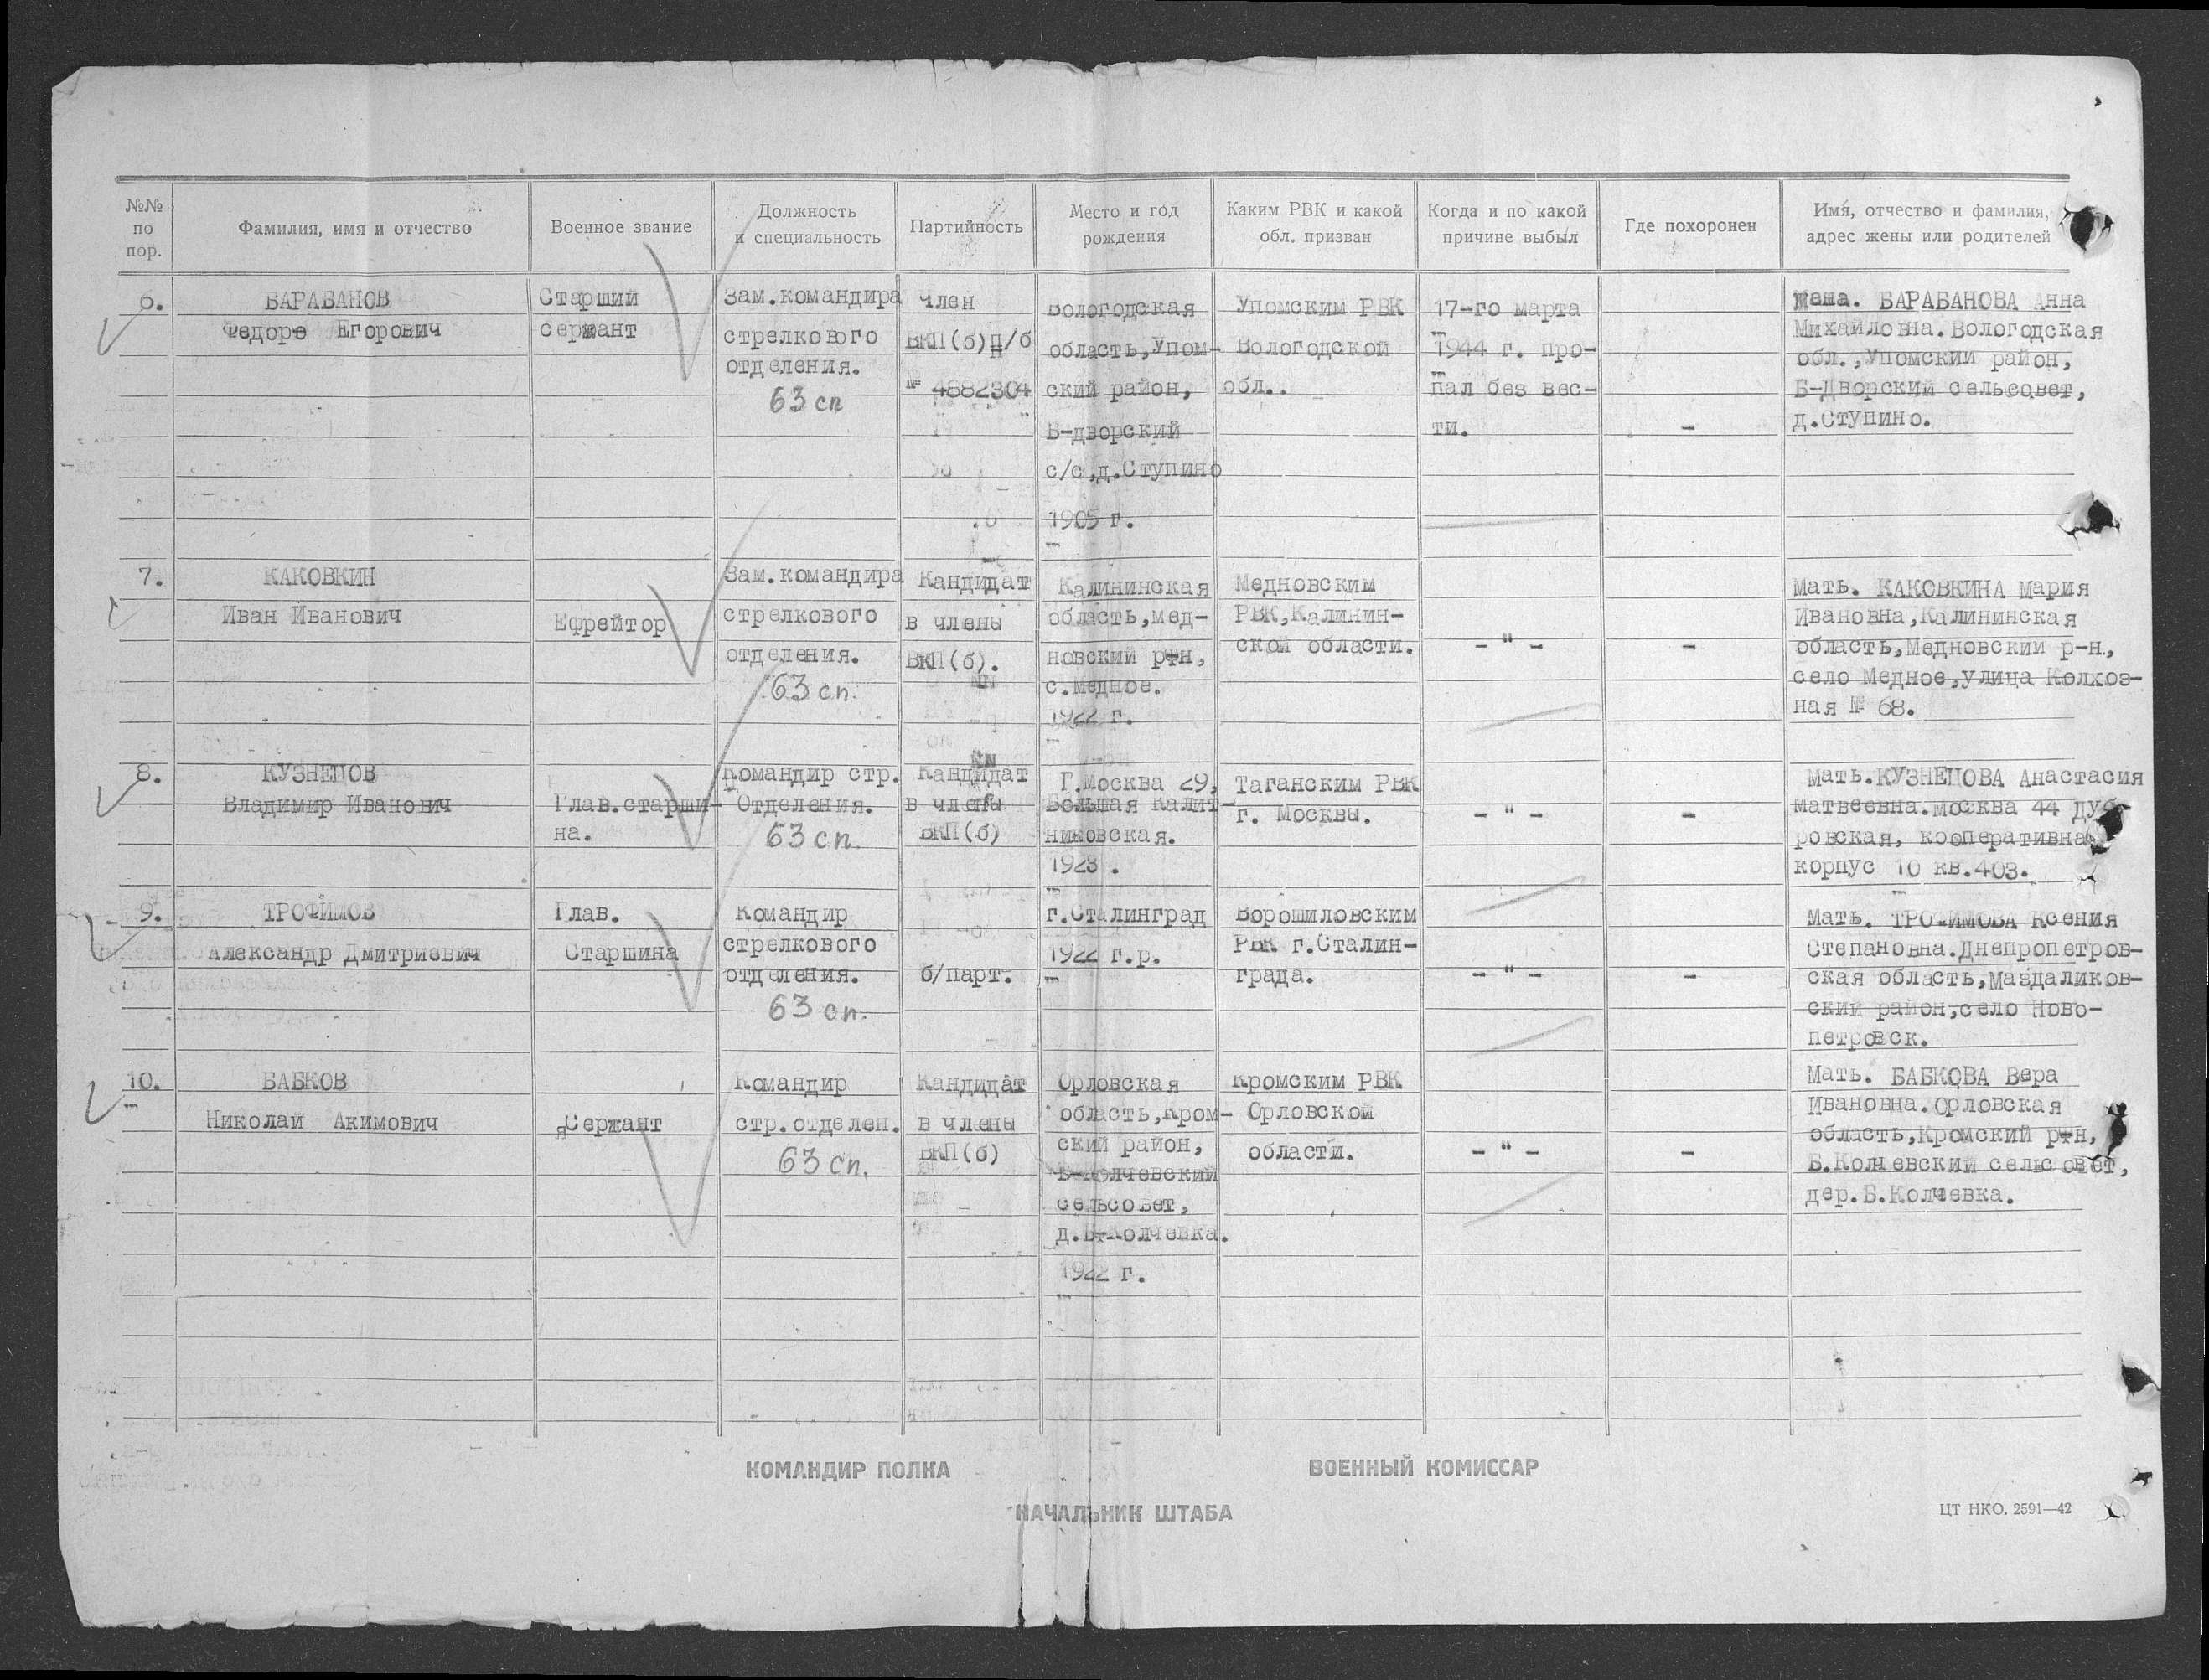 №№
по
пор.
Фамилия, имя и отчество
Военное звание
Должность
и специальность
Партийность
Место и год
рождения
Каким РВК и какой
обл. призван
Когда и по какой
причине выбыл
Где похоронен
Имя, отчество и фамилия,
адрес жены или родителей
6.
БАРАБАНОВ
Федоре Егорович
Старший
сержант
Зам.командира
стрелкового
отделения.
63 сп
Член
ВКП(б)п/б
№ 4882304
Вологодская
область,Упом-
ский район,
Б-дворский
с/с,д.Ступино
1905 г.
Упомским РВК
Вологодской
обл..
17-го марта
1944 г. про-
пал без вес-
ти.
-
Жена. БАРАБАНОВА Анна
Михайловна.Вологодская
обл.,Упомский район,
Б-Дворский сельсовет,
д.Ступино.
7.
КАКОВКИН
Иван Иванович
Ефрейтор
Зам.командира
стрелкового
отделения.
63 сп.
Кандидат
в члены
ВКП(б).
Калининская
область,Мед-
новский р-н,
с.Медное.
1922 г.
Медновским
РВК,Калинин-
ской области.
- " -
-
Мать. КАКОВКИНА Мария
Ивановна,Калининская
область,Медновский р-н.,
село Медное,улица Колхоз-
ная № 68.
8.
КУЗНЕЦОВ
Владимир Иванович
Глав.старши-
на.
Командир стр.
Отделения.
63 сп.
Кандидат
в члены
ВКП(б)
Г.Москва 29,
Большая Калит-
никовская.
1923 .
Таганским РВК
г. Москвы.
- " -
-
Мать.КУЗНЕЦОВА Анастасия
Матвеевна.Москва 44 Дуб-
ровская, кооперативна
корпус 10 кв.403.
9.
ТРОФИМОВ
Александр Дмитриевич
Глав.
Старшина
Командир
стрелкового
отделения.
63 сп.
б/парт.
г.Сталинград
1922 г.р.
Ворошиловским
РВК г.Сталин-
града.
- " -
-
Мать. ТРОФИМОВА Ксения
Степановна.Днепропетров-
ская область,Маздаликов-
ский район,село Ново-
петровск.
10.
БАБКОВ
Николай Акимович
Сержант
Командир
стр.отделен.
63 сп.
Кандидат
в члены
ВКП(б)
Орловская
область,Кром-
ский район,
Б-Колчевский
сельсовет,
д.Б-Колчевка.
1922 г.
Кромским РВК
Орловской
области.
- " -
-
Мать. БАБКОВА Вера
Ивановна.Орловская
область,Кромский р-н,
Б.Колчевский сельсовет,
дер.Б.Колчевка.
КОМАНДИР ПОЛКА
ВОЕННЫЙ КОМИССАР
НАЧАЛЬНИК ШТАБА
ЦТ НКО. 2591—42